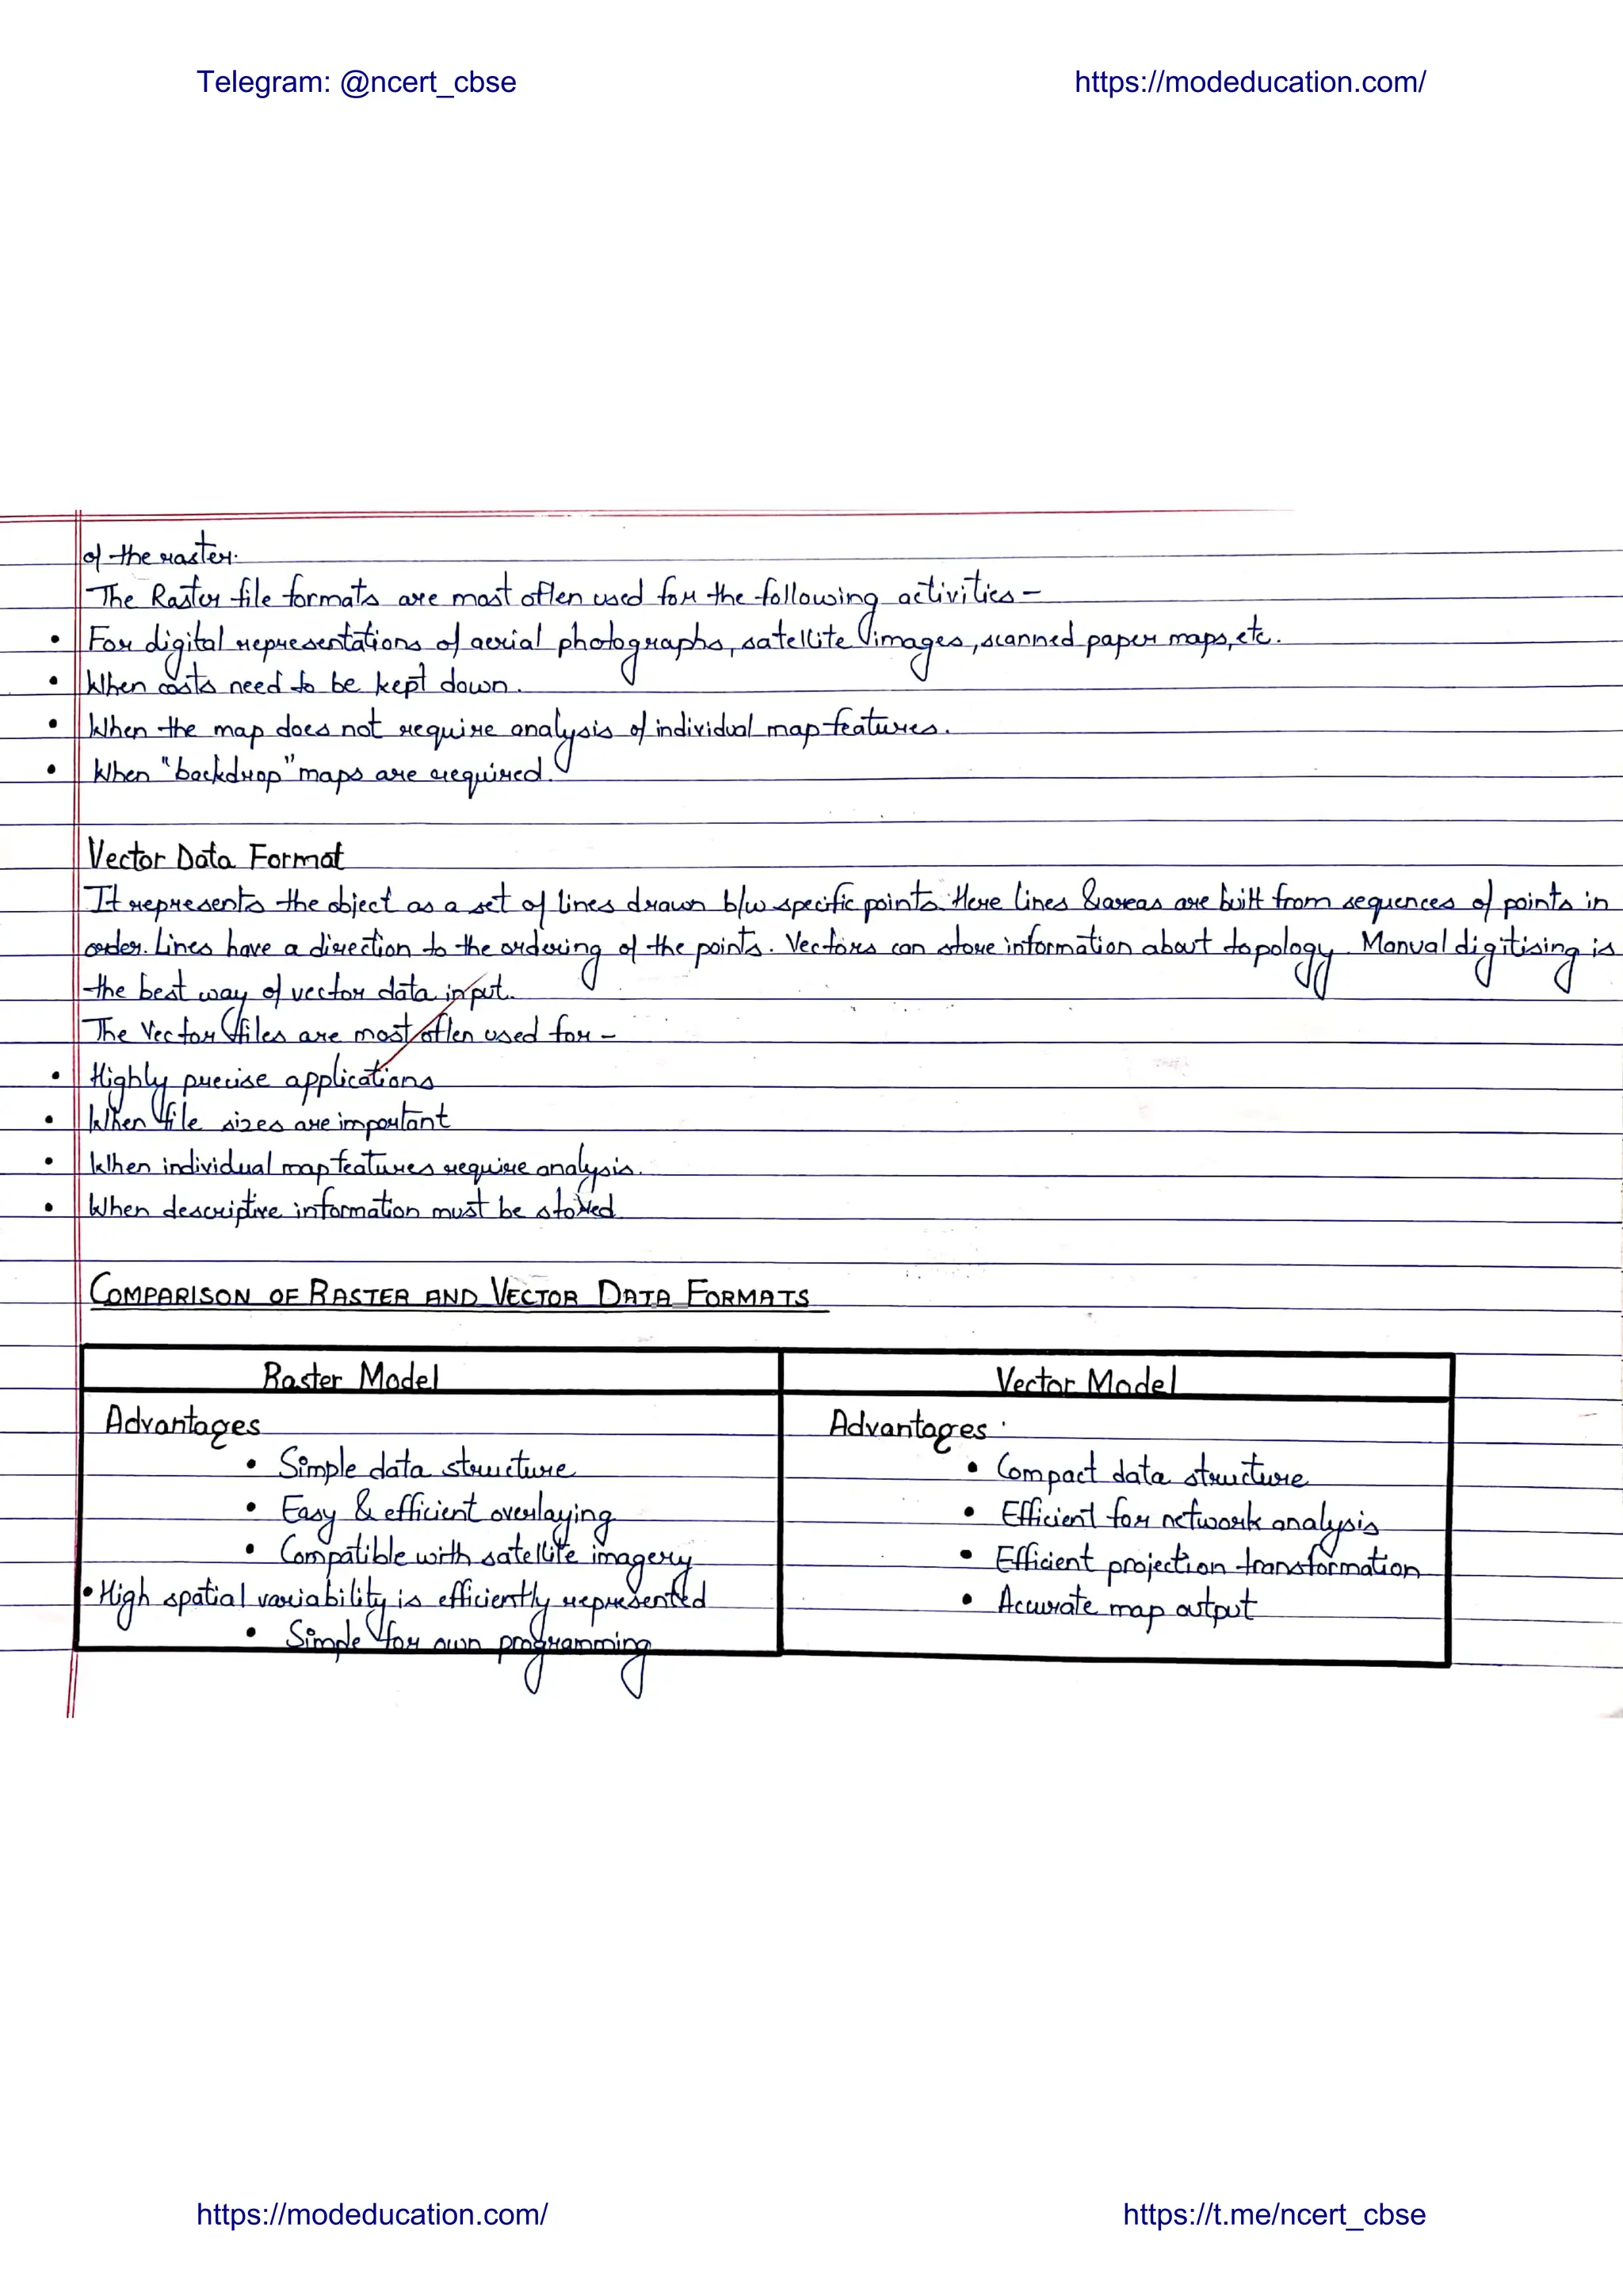 Telegram: @ncert_cbse https://modeducation.com/
of the raster.
The Raster file formats are most often used for the following activities –
• For digital representations of aerial photographs, satellite images, scanned paper maps, etc.
• When costs need to be kept down.
• When the map does not require analysis of individual map features.
• When "backdrop" maps are required.
Vector Data Format
It represents the object as a set of lines drawn b/w specific points. Here lines & areas are built from sequences of points in
order. Lines have a direction to the ordering of the points. Vectors can store information about topology. Manual digitising is
the best way of vector data input.
The Vector files are most often used for –
• Highly precise applications
• When file sizes are important
• When individual map features require analysis.
• When descriptive information must be stored
COMPARISON OF RASTER AND VECTOR DATA FORMATS
Raster Model Vector Model
Advantages Advantages
• Simple data structure • Compact data structure
• Easy & efficient overlaying • Efficient for network analysis
• Compatible with satellite imagery • Efficient projection transformation
• High spatial variability is efficiently represented • Accurate map output
• Simple for own programming
https://modeducation.com/ https://t.me/ncert_cbse